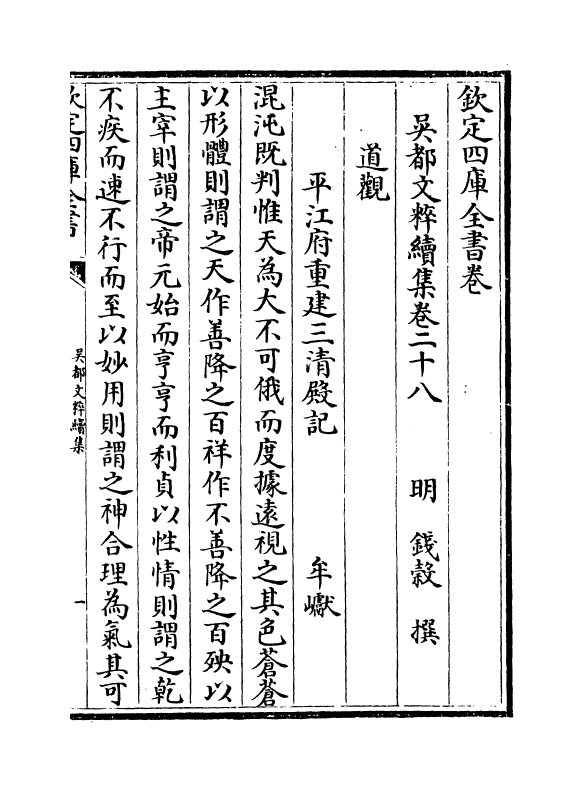 欽定四庫全書卷
吳都文粹續集卷二十八　明　錢穀　撰
道觀
平江府重建三清殿記　牟巘
混沌既判惟天為大不可俄而度據遠視之其色蒼蒼
以形體則謂之天作善降之百祥作不善降之百殃以
主宰則謂之帝元始而亨亨而利貞以性情則謂之乾
不疾而速不行而至以妙用則謂之神合理為氣其可
欽定四庫全書
吳都文粹續集
一